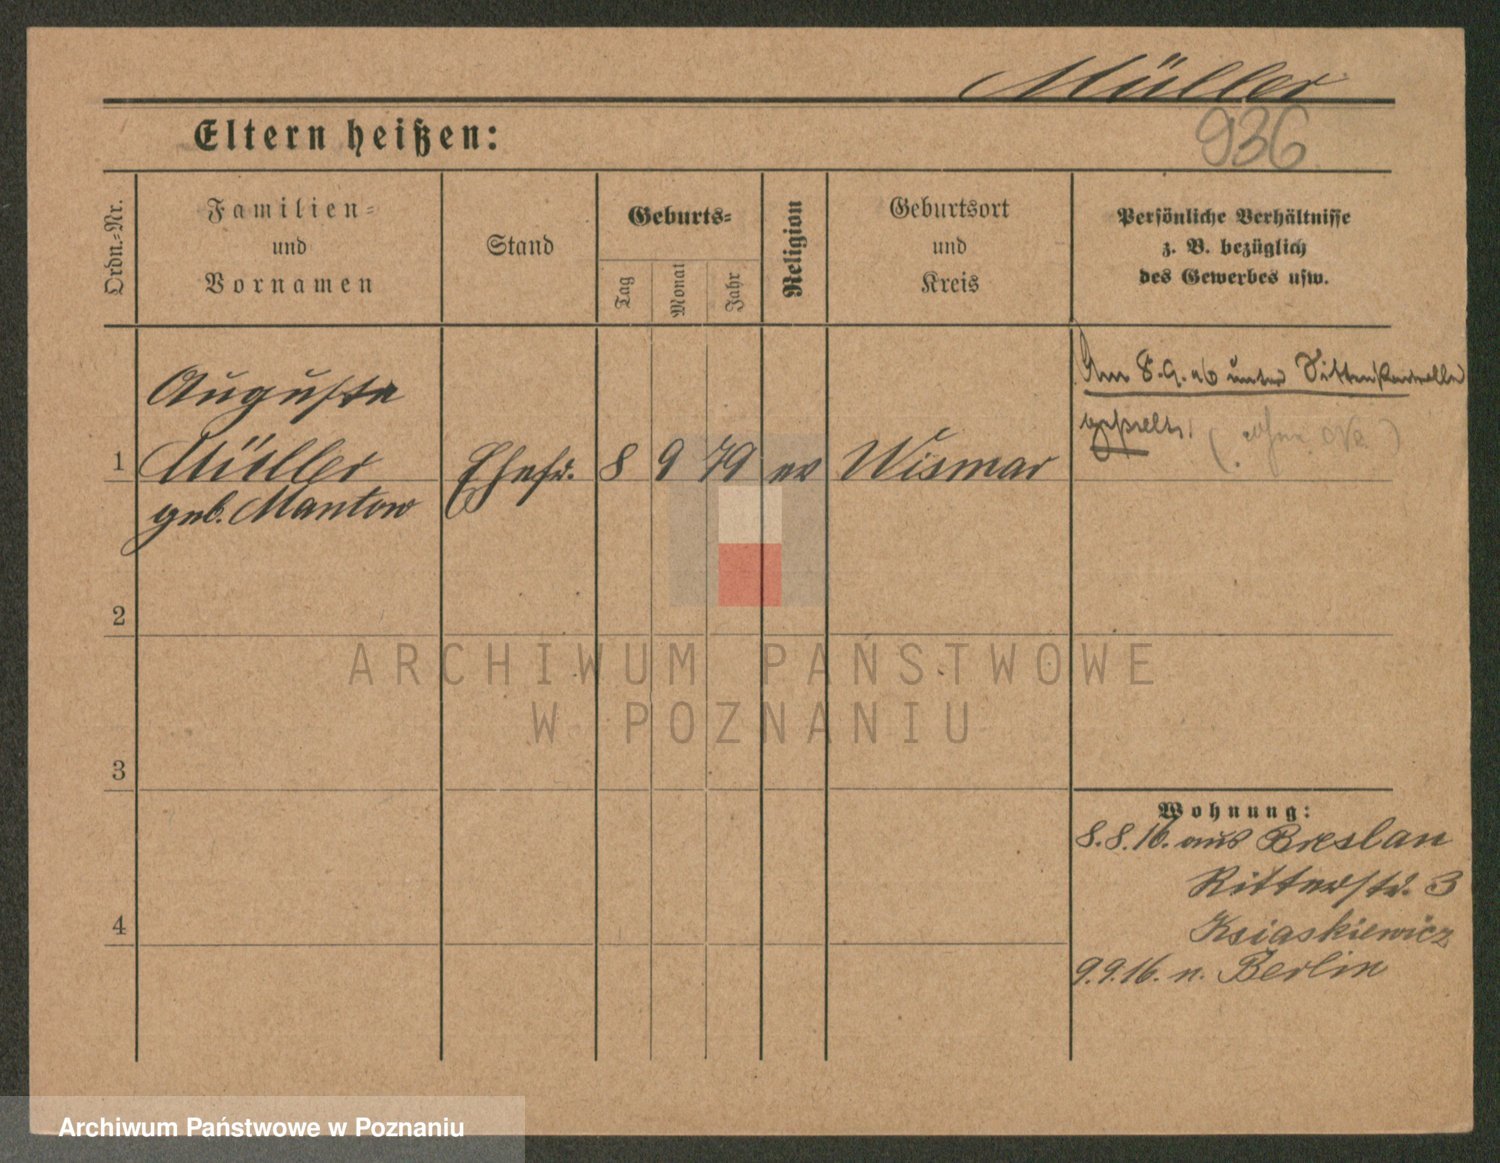 Müller
936
Eltern heißen:
Ordn.-Nr.
Familien-
und
Vornamen
Stand
Geburts-
Tag
Monat
Jahr
Religion
Geburtsort
und
Kreis
Persönliche Verhältnisse
z. B. bezüglich
des Gewerbes usw.
Am 8.9.16 unter Sittenkontrolle
gestellt.
Auguste
1 Müller Ehefr. 8 9 79 ev Wismar
geb. Mantow
2
3
4
Wohnung:
8.8.16. aus Breslau
Ritterstr. 3
Ksiaskiewicz
9.9.16. n. Berlin
ARCHIWUM PAŃSTWOWE
W POZNANIU
Archiwum Państwowe w Poznaniu